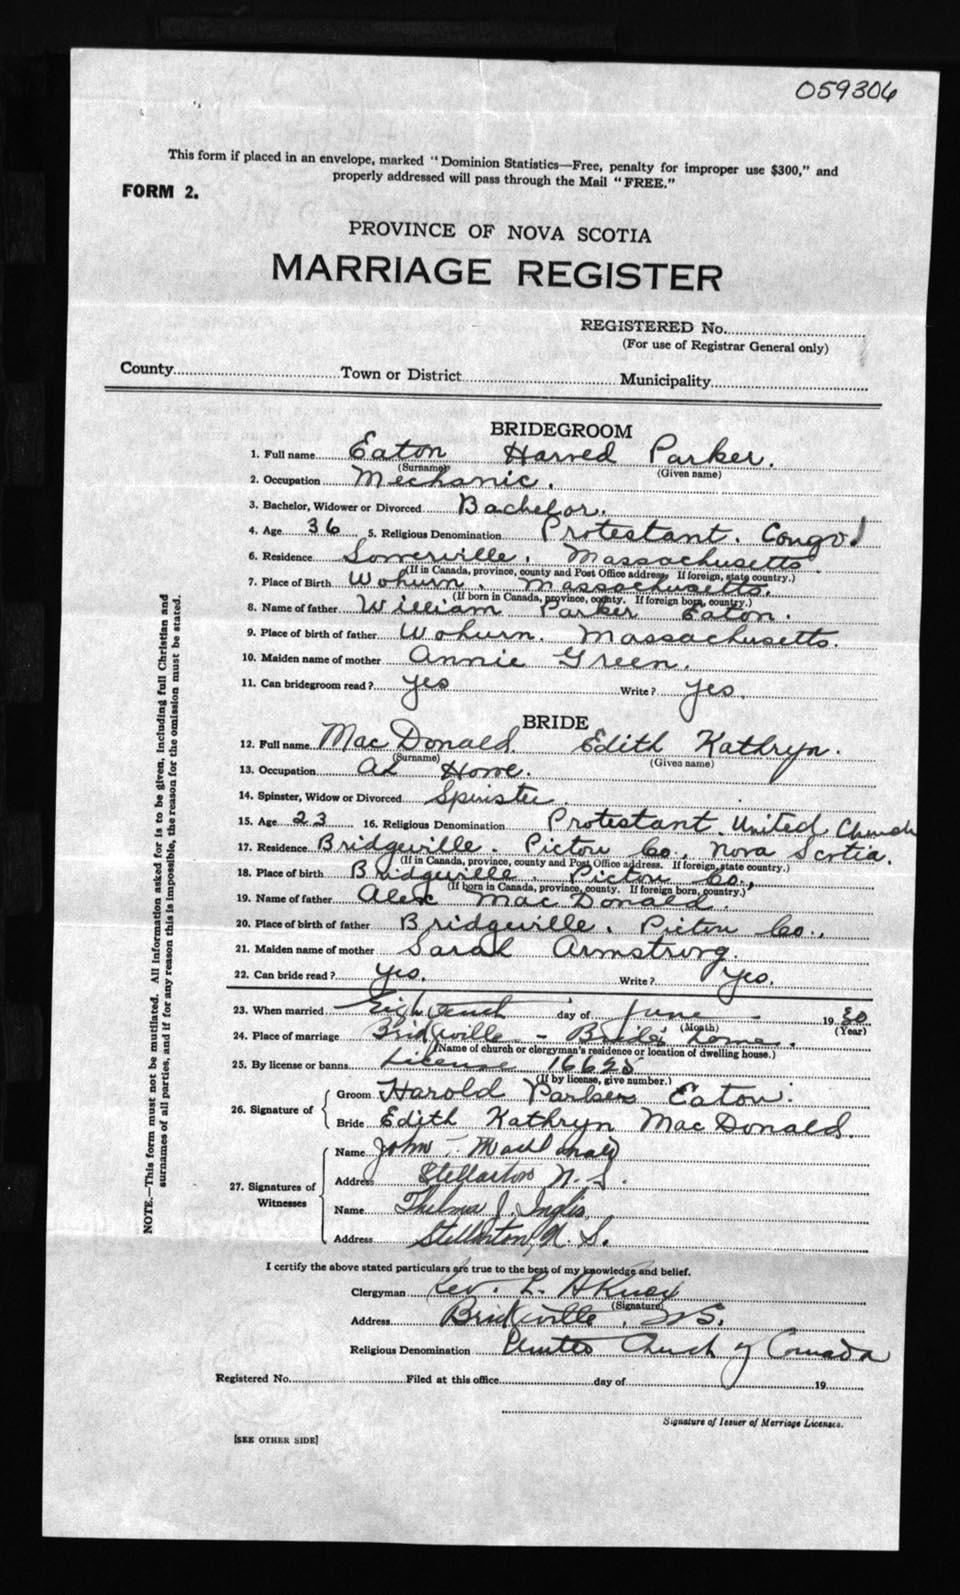 059306
This form if placed in an envelope, marked "Dominion Statistics—Free, penalty for improper use $300," and
properly addressed will pass through the Mail "FREE."
FORM 2.
PROVINCE OF NOVA SCOTIA
MARRIAGE REGISTER
REGISTERED No.
(For use of Registrar General only)
County Town or District Municipality
BRIDEGROOM
1. Full name Eaton Harved Parker.
(Surname) (Given name)
2. Occupation Mechanic.
3. Bachelor, Widower or Divorced Bachelor.
4. Age 36 5. Religious Denomination Protestant. Congo'l
6. Residence Somerville. Massachusetts.
(If in Canada, province, county and Post Office address. If foreign, state country.)
7. Place of Birth Woburn. Massachusetts.
(If born in Canada, province, county. If foreign born, country.)
8. Name of father William Parker Eaton.
9. Place of birth of father Woburn. Massachusetts.
10. Maiden name of mother Annie Green.
11. Can bridegroom read? yes Write? yes.
BRIDE
12. Full name MacDonald Edith Kathryn.
(Surname) (Given name)
13. Occupation At Home.
14. Spinster, Widow or Divorced Spinster.
15. Age 23 16. Religious Denomination Protestant. United Church
17. Residence Bridgeville. Pictou Co., Nova Scotia.
(If in Canada, province, county and Post Office address. If foreign, state country.)
18. Place of birth Bridgeville. Pictou Co.,
(If born in Canada, province, county. If foreign born, country.)
19. Name of father Alex MacDonald.
20. Place of birth of father Bridgeville. Pictou Co.,
21. Maiden name of mother Sarah Armstrong.
22. Can bride read? yes. Write? yes.
23. When married Eighteenth day of June 1930
(Month) (Year)
24. Place of marriage Bridgeville - Bride's home.
(Name of church or clergyman's residence or location of dwelling house.)
25. By license or banns License 16625
(If by license, give number.)
26. Signature of
Groom Harold Parker Eaton.
Bride Edith Kathryn MacDonald.
27. Signatures of Witnesses
Name John T. MacDonald
Address Stellarton N. S.
Name Thelma J. Inglis
Address Stellarton, N. S.
I certify the above stated particulars are true to the best of my knowledge and belief.
Clergyman Rev. L. A Knox
(Signature)
Address Bridgeville, N.S.
Religious Denomination United Church of Canada
Registered No. Filed at this office day of 19
Signature of Issuer of Marriage Licenses.
[SEE OTHER SIDE]
NOTE.—This form must not be mutilated. All information asked for is to be given, including full Christian and
surnames of all parties, and if for any reason this is impossible, the reason for the omission must be stated.